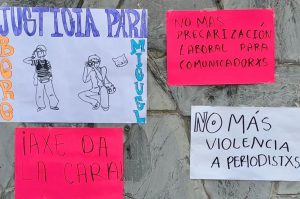 JUSTICIA PARA
BORO
MIGUEL
NO MÁS
PRECARIZACIÓN
LABORAL PARA
COMUNICADORXS
¡AXE DA
LA CARA!
NO MÁS
VIOLENCIA
A PERIODISTXS